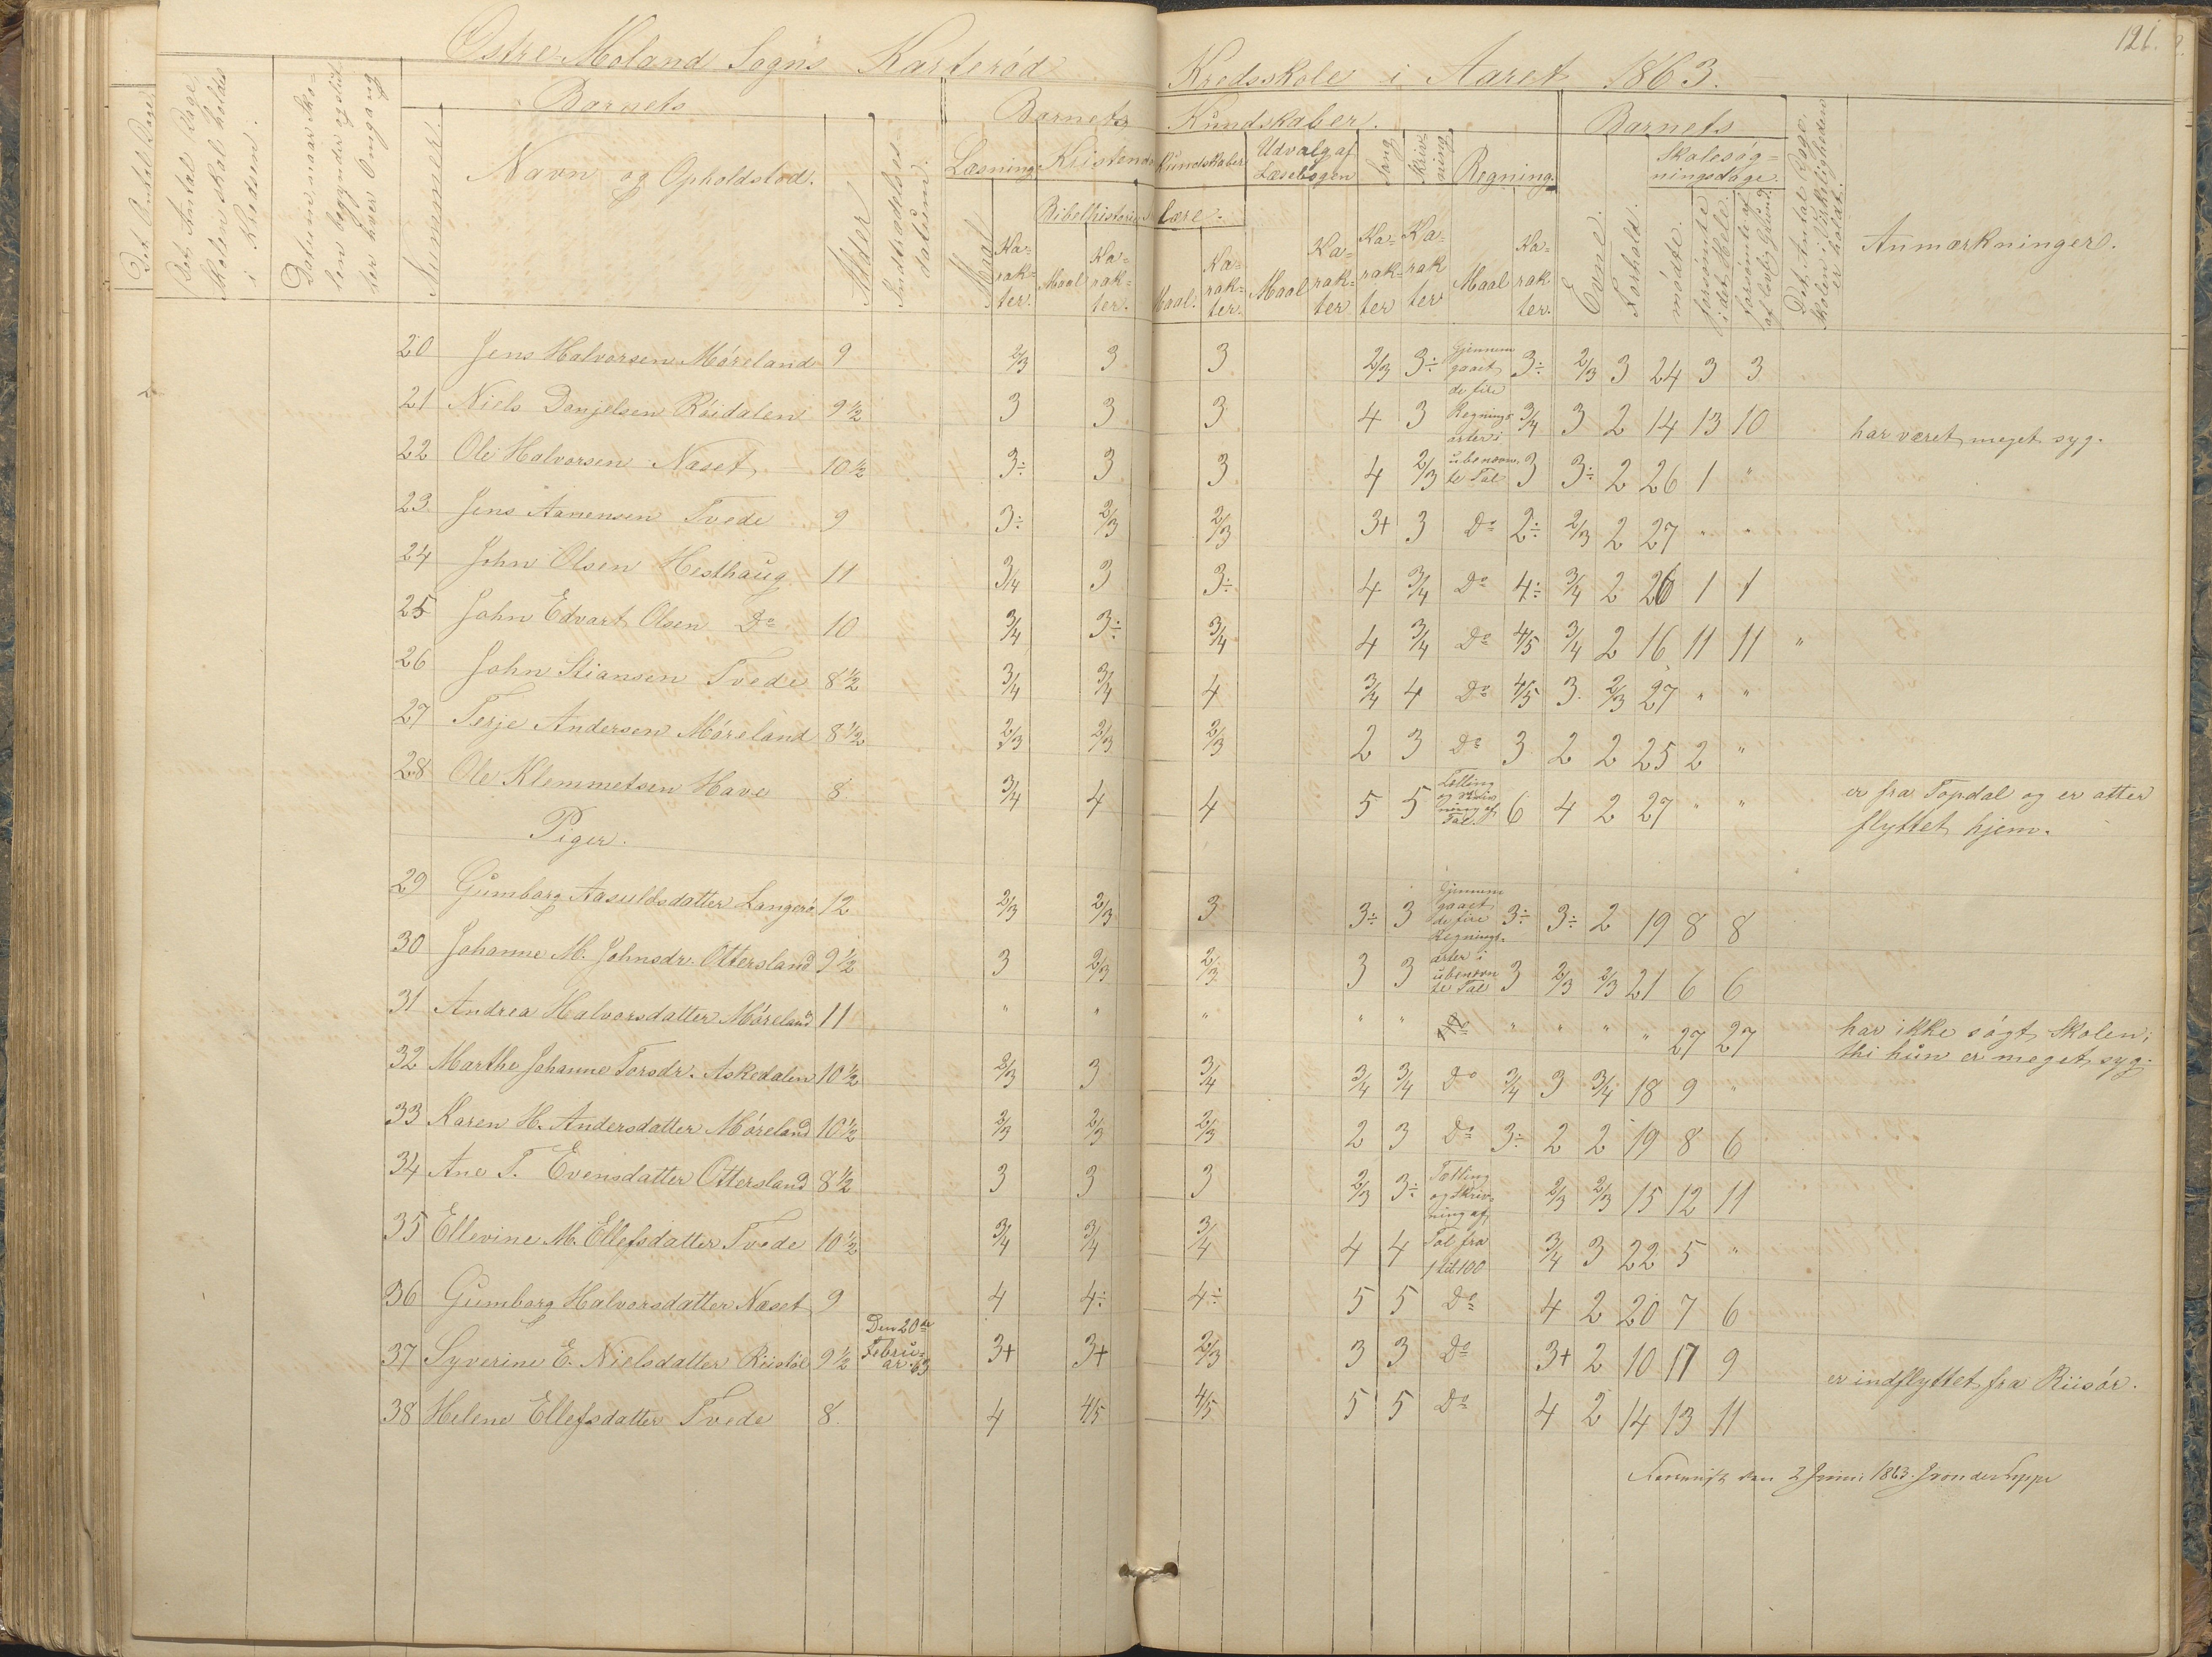 121.
Østre Moland Sogns Karterød Kredsskole i Aaret 1863.
Det Antal Dage Skolen skal holdes i Kredsen.
Datum naar Skolen begynder og slutter hver Omgang
Nummer.
Barnets
Navn og Opholdsted.
Alder
Indtrædelsesdatum.
Barnets Kundskaber.
Læsning
Kristendoms Kundskaber
Udvalg af Læsebogen
Sang
Skrivning
Regning.
Bibelhistorie
lære.
Maal
Karakter.
Maal
Karakter.
Maal.
Karakter.
Maal
Karakter
Karakter
Karakter
Maal
Karakter.
Barnets
Evne.
Forhold.
Skolesøgningsdage.
mødte.
forsømte i det Hele.
forsømte af lovlig Grund.
Det Antal Dage Skolen i Virkeligheden er holdt.
Anmærkninger.
20 Jens Halvorsen Møreland 9 2/3 3 3 2/3 3÷ Gjennemgaaet de fire 3÷ 2/3 3 24 3 3
21 Niels Danjelsen Röidalen 9½ 3 3 3 4 3 Regningsarter i 3/4 3 2 14 13 10 har været meget syg.
22 Ole Halvorsen Næset 10½ 3÷ 3 3 4 2/3 ubenævnte Tal 3 3÷ 2 26 1 "
23 Jens Aanensen Tvede 9 3÷ 2/3 2/3 3+ 3 Do 2÷ 2/3 2 27 " "
24 John Olsen Hesthaug 11 3/4 3 3÷ 4 3/4 Do 4÷ 3/4 2 26 1 1
25 John Edvart Olsen Do 10 3/4 3÷ 3/4 4 3/4 Do 4/5 3/4 2 16 11 11 "
26 John Stiansen Tvede 8½ 3/4 3/4 4 3/4 4 Do 4/5 3 2/3 27 " "
27 Terje Andersen Møreland 8½ 2/3 2/3 2/3 2 3 Do 3 2 2 25 2 "
28 Ole Klemmetsen Have 8 3/4 4 4 5 5 Tælling og Skrivning af Tal. 6 4 2 27 " " er fra Topdal og er atter
flyttet hjem.
Piger.
29 Gumborg Aasuldsdatter Langerø 12 2/3 2/3 3 3÷ 3 Gjennemgaaet de fire Regnings- 3÷ 3÷ 2 19 8 8
30 Johanne M. Johnsdr. Ottersland 9½ 3 2/3 2/3 3 3 arter i ubenævnte Tal 3 2/3 2/3 21 6 6
31 Andrea Halvorsdatter Møreland 11 " " " " " Do " " " " 27 27 har ikke søgt Skolen;
thi hun er meget syg.
32 Marthe Johanne Torsdr. Askedalen 10½ 2/3 3 3/4 3/4 3/4 Do 3/4 3 3/4 18 9 "
33 Karen H. Andersdatter Møreland 10½ 2/3 2/3 2/3 2 3 Do 3÷ 2 2 19 8 6
34 Ane T. Evensdatter Ottersland 8½ 3 3 3 2/3 3÷ Tælling og Skrivning af 2/3 2/3 15 12 11
35 Ellevine M. Ellefsdatter Tvede 10½ 3/4 3/4 3/4 4 4 Tal fra 1 til 100 3/4 3 22 5 "
36 Gumborg Halvorsdatter Næset 9 4 4÷ 4÷ 5 5 Do 4 2 20 7 6
37 Syverine E. Nielsdatter Riisløl 9½ Den 20de Februar 63 3+ 3+ 2/3 3 3 Do 3+ 2 10 17 9 er indflyttet fra Riisör.
38 Helene Ellefsdatter Tvede 8. 4 4/5 4/5 5 5 Do 4 2 14 13 11
den 2 Juni 1863.